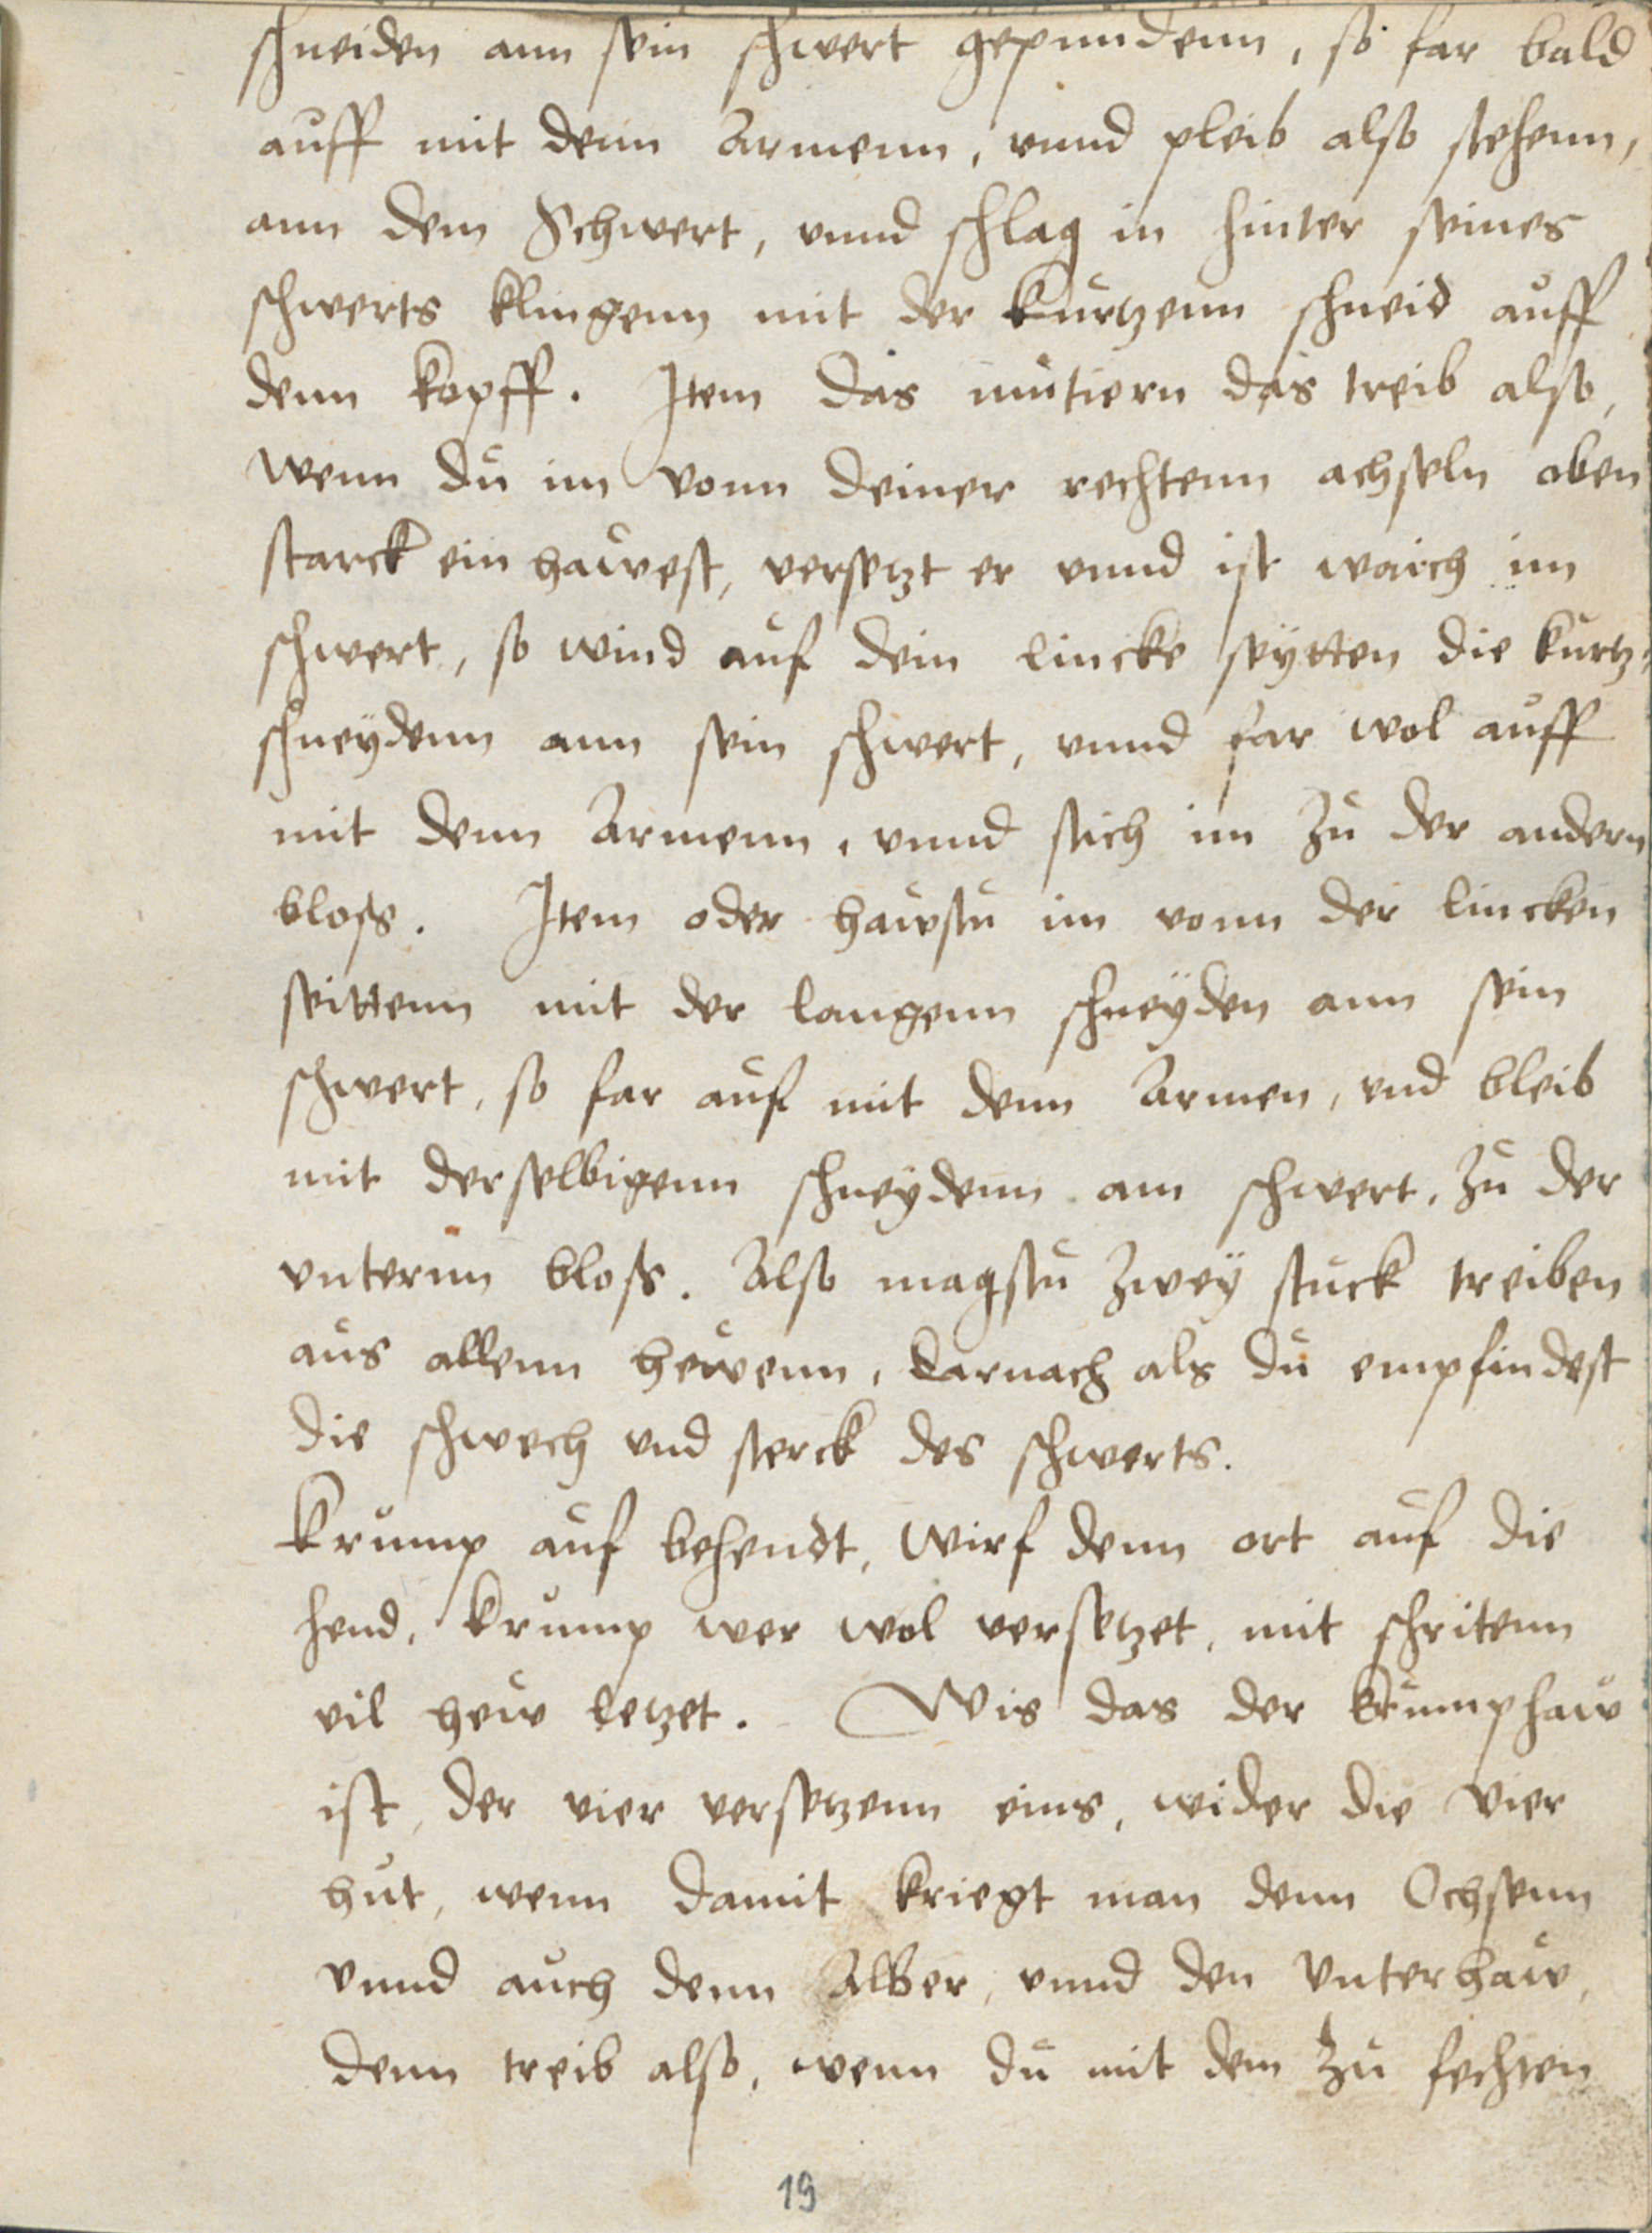 schneiden ann sein schwert gepundenn, so far bald
auff mit denn Armenn, vnnd pleib also stehenn,
ann dem Schwert, vnnd schlag in hinter seines
schwerts klingenn mit der kurtzenn schneid auff
denn kopff. Item das mutiern das treib also,
wenn du im vonn deiner rechtenn achseln oben
starck ein hawest, versetzt er vnnd ist waich im
schwert, so wind auf dein lincke seytten die kurtz
schneydenn ann sein schwert, vnnd far wol auff
mit denn Armenn, vnnd stich im zu der andern
bloss. Item oder hawstu im vonn der lincken
seittenn mit der langenn schneyden ann sein
schwert, so far auf mit denn Armen, vnd bleib
mit derselbigenn schneydenn am schwert, zu der
vnternn bloss. Also magstu zwey stuck treiben
aus allenn hewenn, darnach als du empfindest
die schwech vnd sterck des schwerts.
Krump auf behendt, wirf denn ort auf die
hend, krump wer wol versetzet, mit schritenn
vil hew letzet. Wis das der krumphaw
ist, der vier versetzenn eins, wider die vier
hut, wenn damit kriegt man denn Ochsenn
vnnd auch denn Alber, vnnd den vnterhaw,
denn treib also, wenn du mit dem zu fechten
19